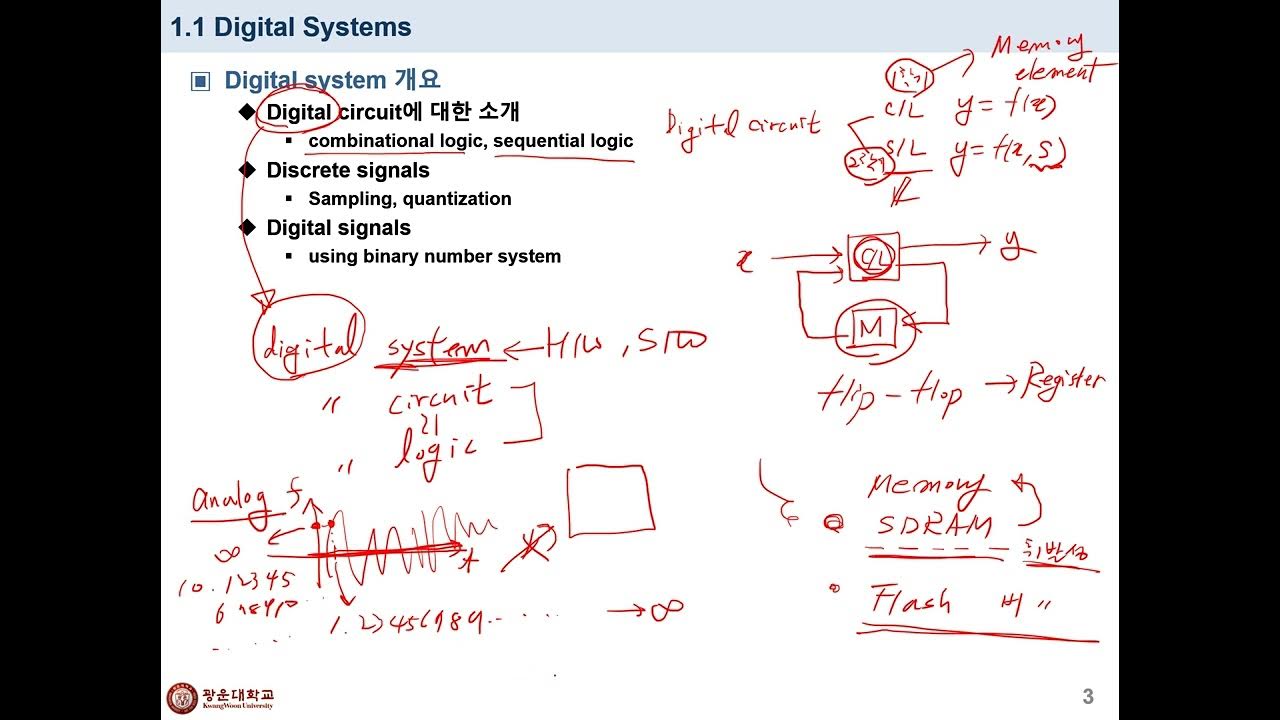 1.1 Digital Systems
Digital system 개요
Digital circuit에 대한 소개
combinational logic, sequential logic
Discrete signals
Sampling, quantization
Digital signals
using binary number system
Memory
element
Digital circuit
C/L y = f(x)
S/L y = f(x, S)
x
C/L
y
M
flip-flop → Register
digital system ← H/W, S/W
" circuit
" logic
analog f
t
∞
10.12345
→ ∞
Memory
SDRAM
휘발성
Flash 비 "
광운대학교
KwangWoon University
3